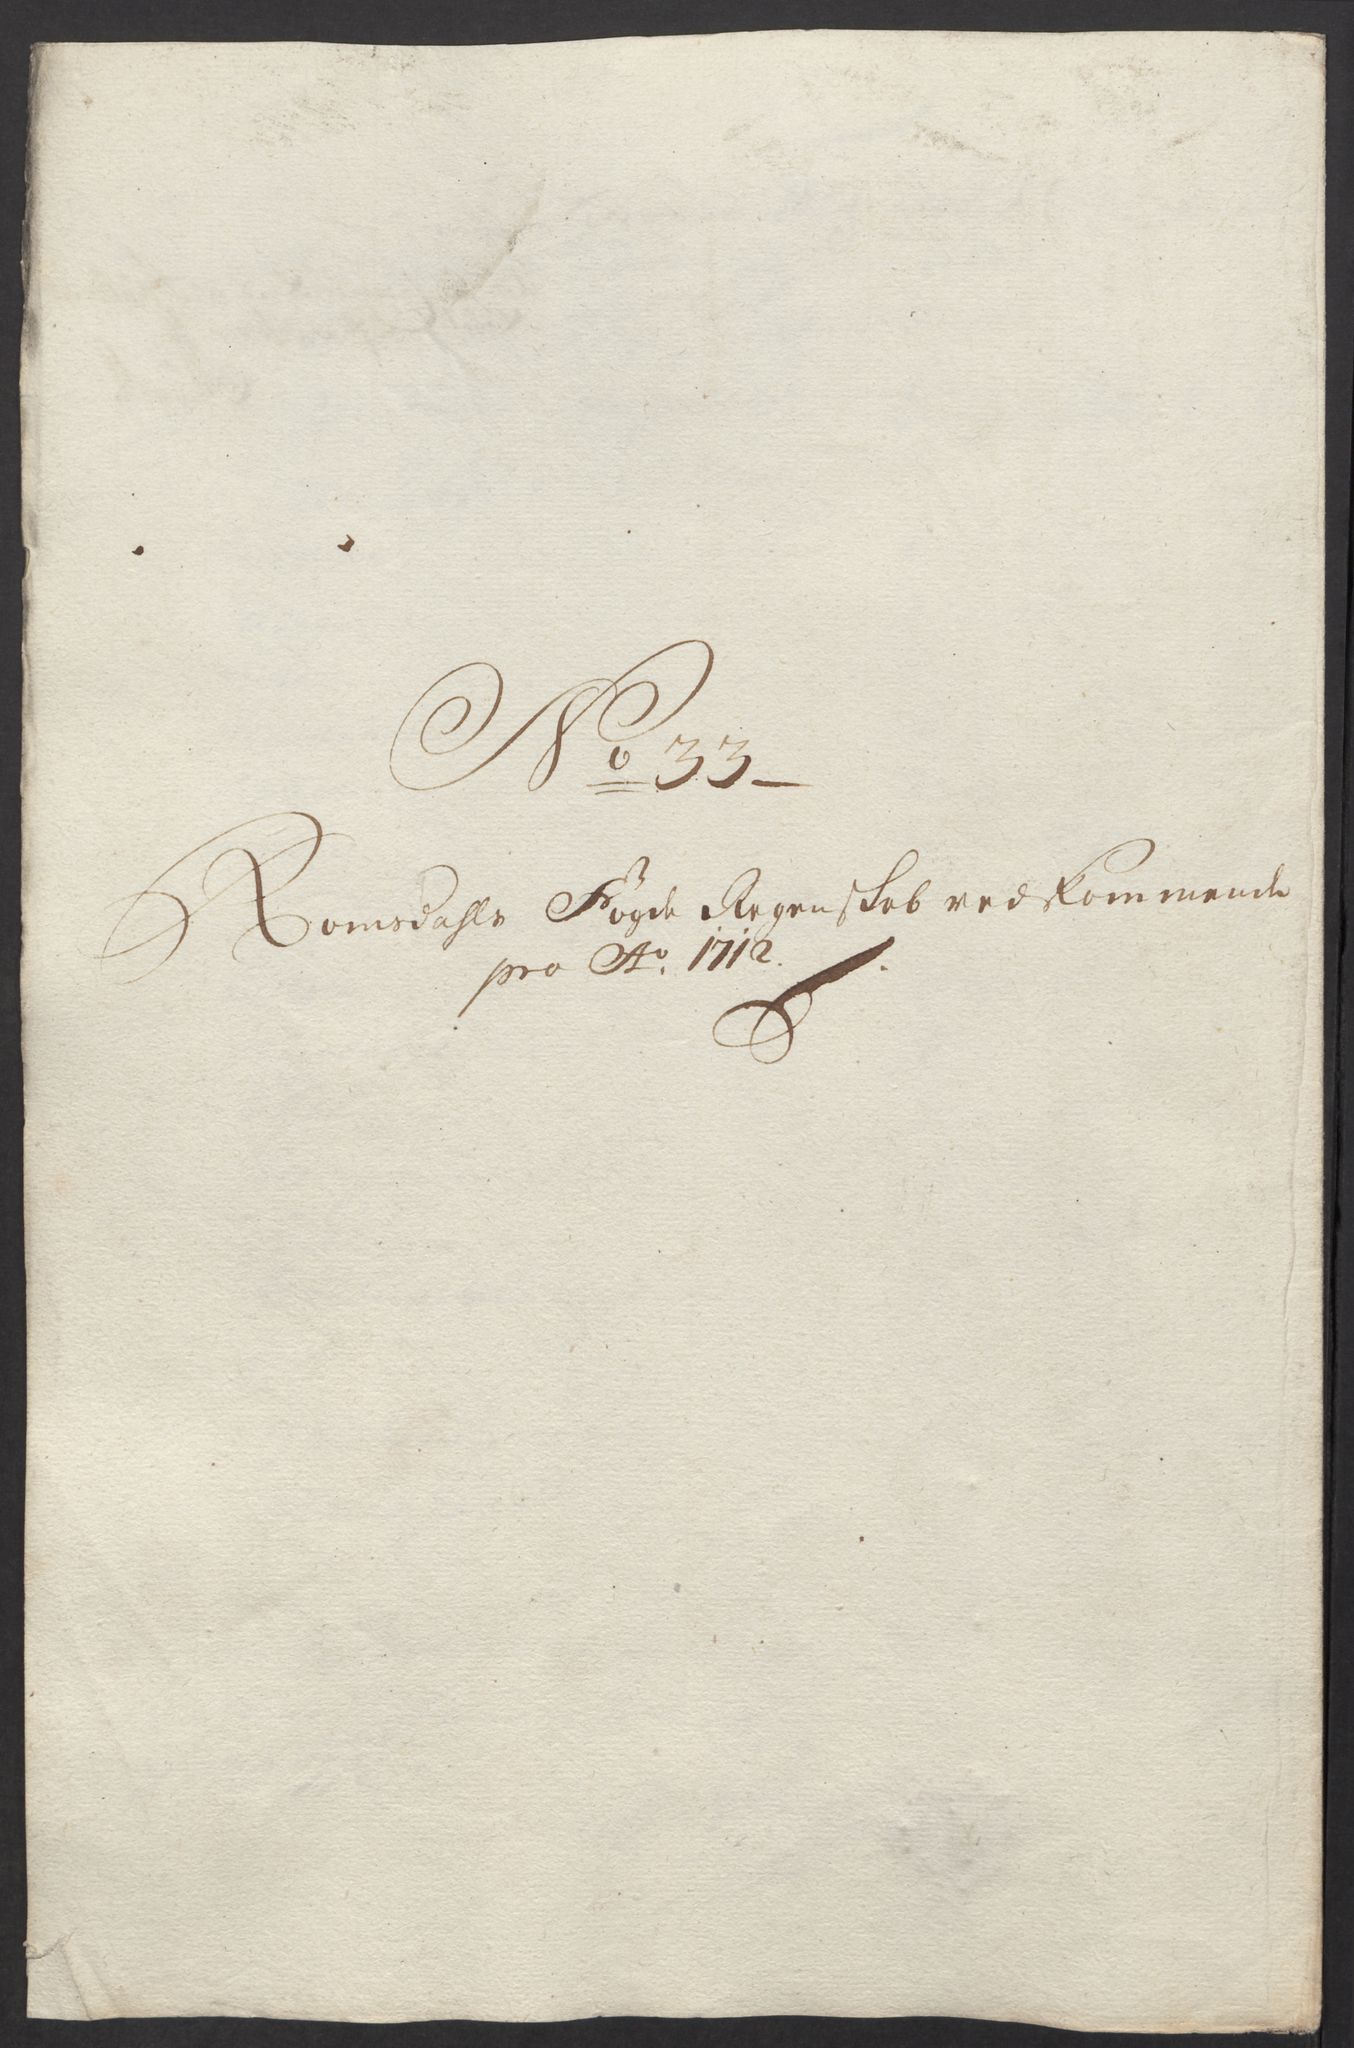 No 33
Romsdahls Fogde Regenskab vedkommende
pro Ao. 1712.